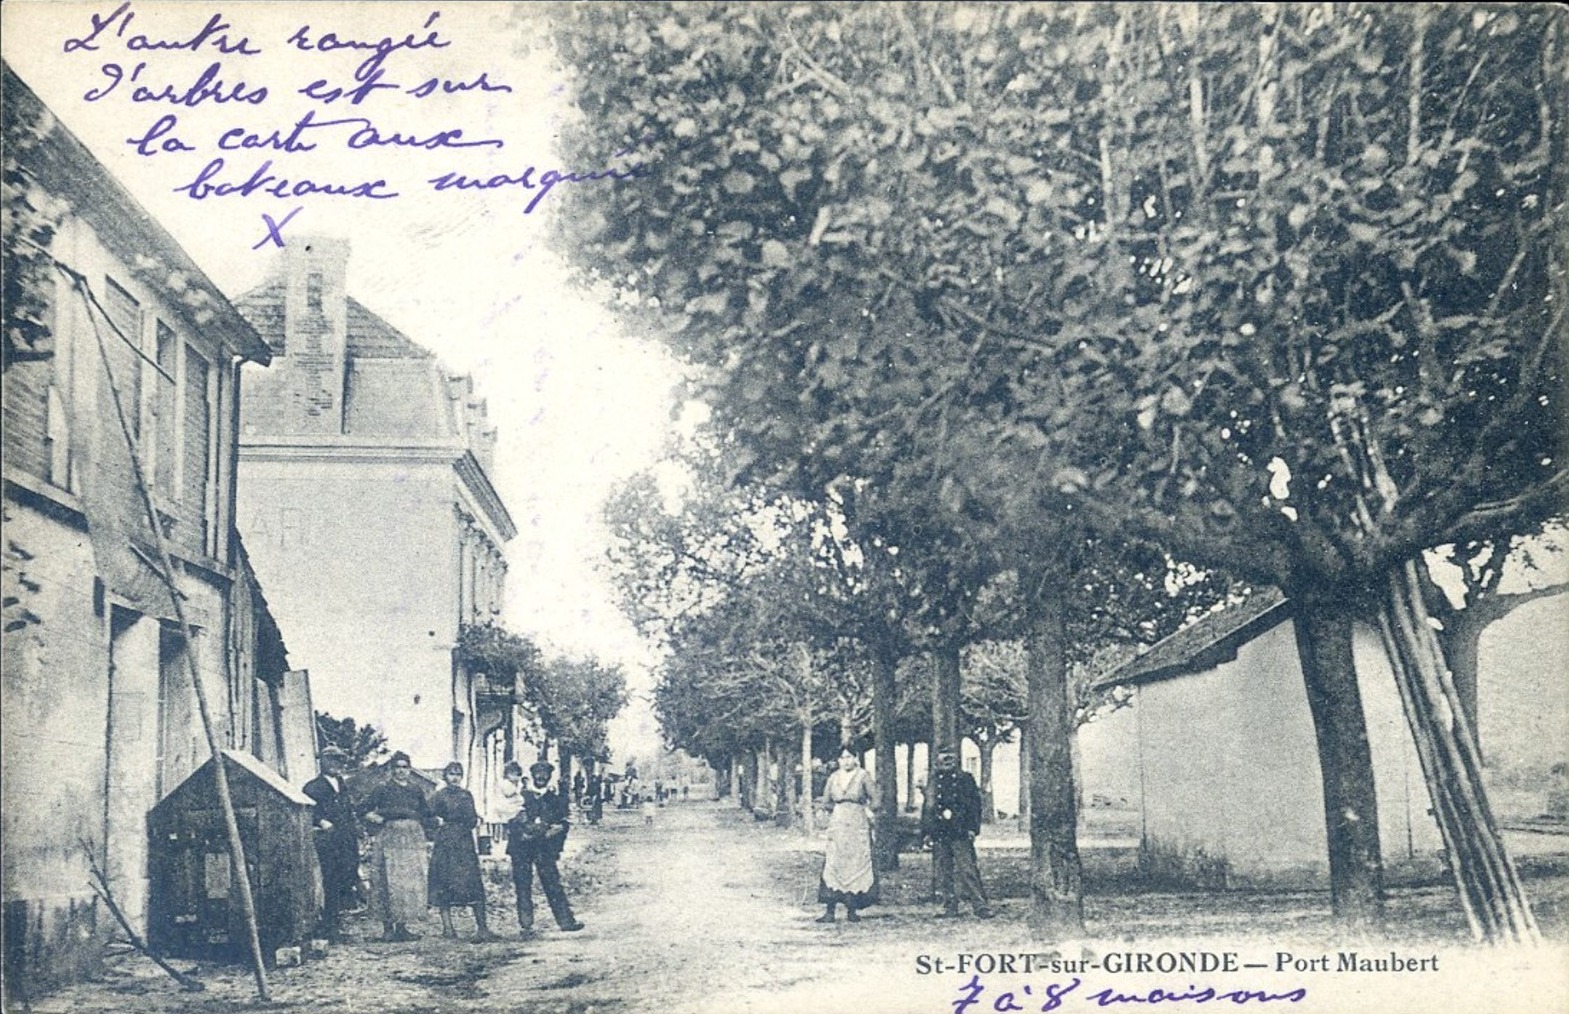 L'autre rangée
d'arbres est sur
la carte aux
bateaux marqués
X
St-FORT-sur-GIRONDE — Port Maubert
7 à 8 maisons